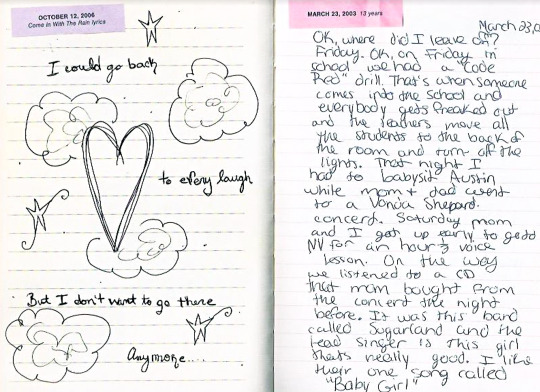 OCTOBER 12, 2006
Come In With The Rain lyrics
I could go back
to every laugh
But I don't want to go there
Anymore....
MARCH 23, 2003 13 years
March 23,
OK, where did I leave off?
Friday. OK, on Friday in
school we had a "Code
Red" drill. That's when someone
comes into the school and
everybody gets freaked out
and the teachers move all
the students to the back of
the room and turn off the
lights. That night I
had to babysit Austin
while mom & dad went
to a Vonda Shepard
concert. Saturday mom
and I got up early to get to
NY for an hour's voice
lesson. On the way
we listened to a CD
that mom bought from
the concert the night
before. It was this band
called Sugarland and the
lead singer is this girl
thats really good. I like
their one song called
"Baby Girl"